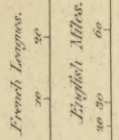 French Leagues.
10 20
English Miles.
20 30 60